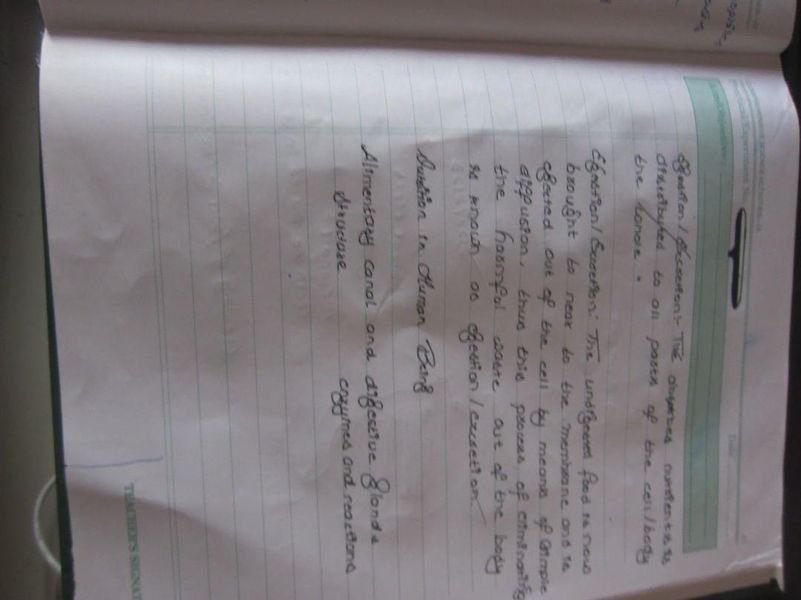 Egestion / Excretion:- The digested nutrients is
distributed to all parts of the cell/body
the
Egestion/Excretion: The undigested food is now
brought to near to the membrane and is
ejected out of the cell by means of simple
diffusion, thus this process of eliminating
the harmful waste out of the body
is known as egestion/excretion.
Nutrition in Human Being
Alimentary canal and digestive glands
Structure enzymes and reactions
Date
TEACHER'S SIGNAT